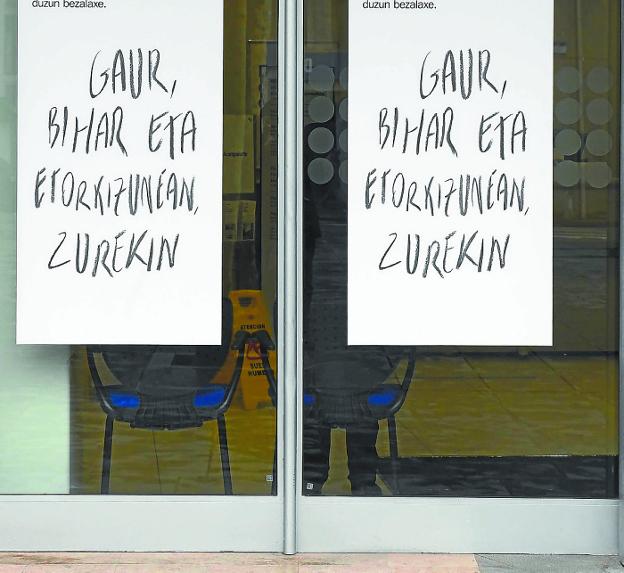 duzun bezalaxe.
GAUR,
BIHAR ETA
ETORKIZUNEAN,
ZUREKIN
duzun bezalaxe.
GAUR,
BIHAR ETA
ETORKIZUNEAN,
ZUREKIN
ATENCION